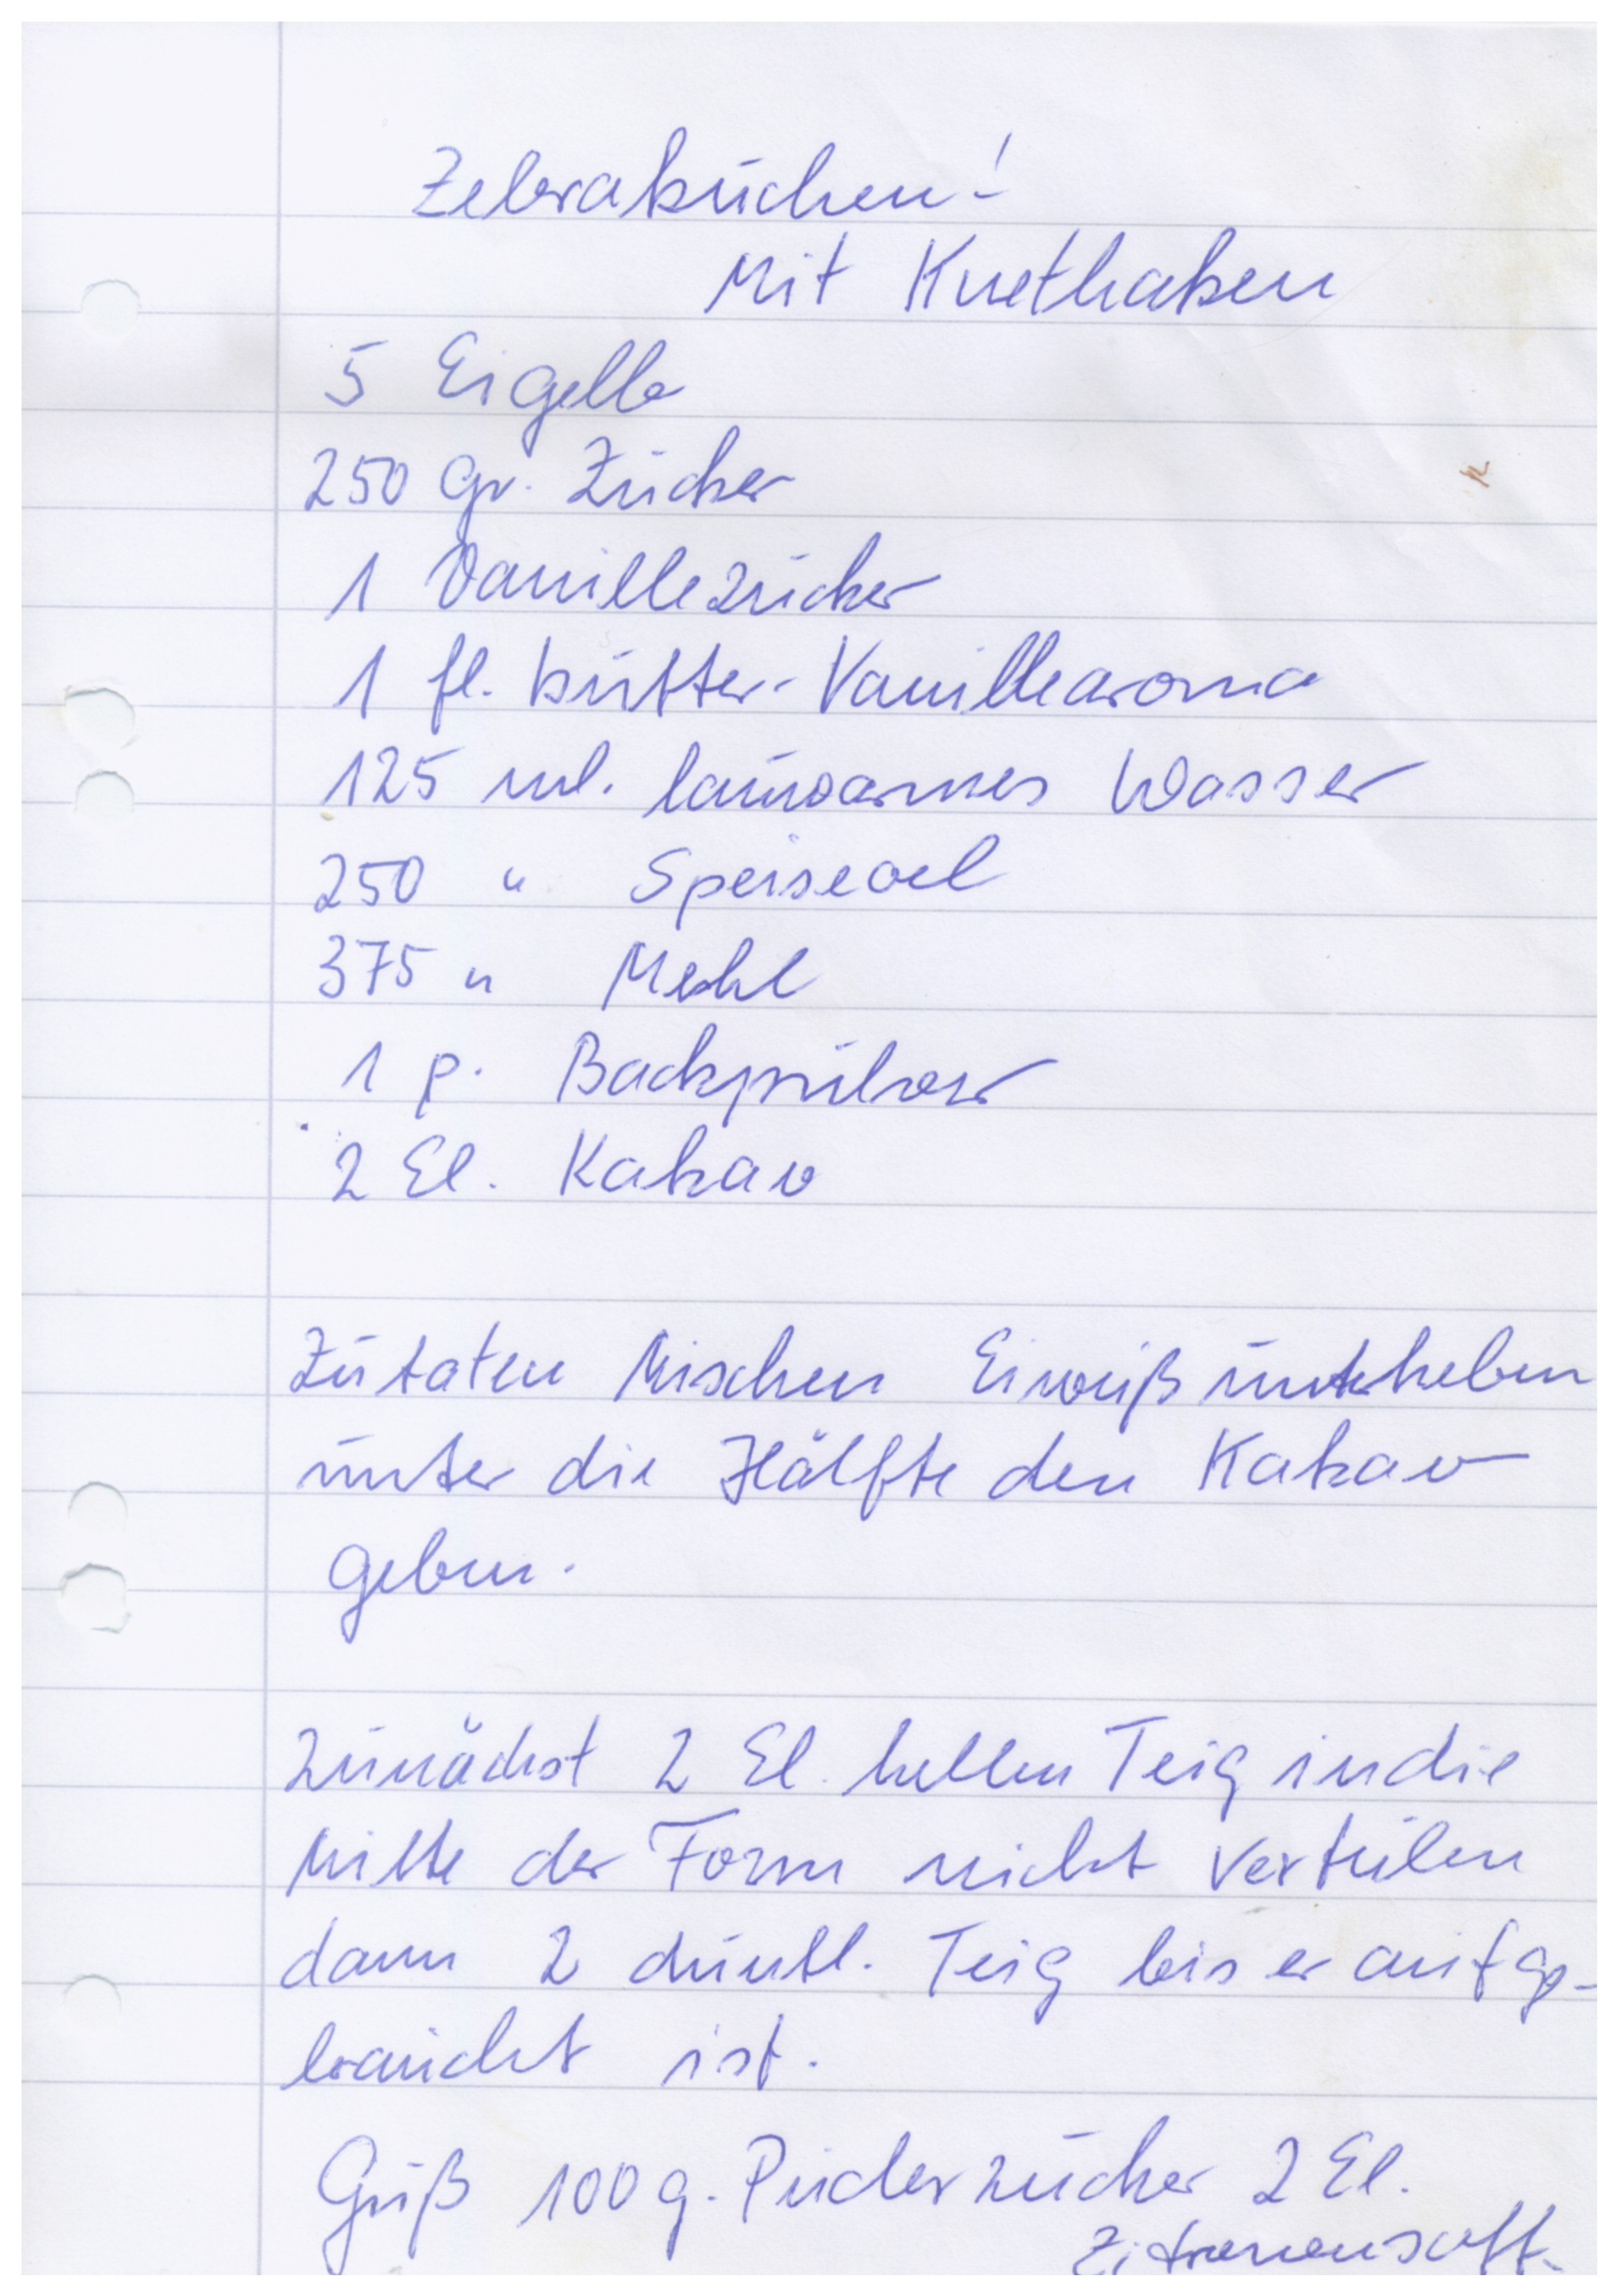 Zebrakuchen!
Mit Knethaken
5 Eigelb
250 gr. Zucker
1 Vanillezucker
1 fl. butter-Vanillearoma
125 ml. lauwarmes Wasser
250 " Speiseoel
375 " Mehl
1 p. Backpulver
2 El. Kakao
Zutaten Mischen Eiweiß unterheben
unter die Hälfte den Kakao
geben.
Zunächst 2 El. hellen Teig in die
Mitte der Form nicht verteilen
dann 2 dunkl. Teig bis er aufge-
braucht ist.
Guß 100 g. Puderzucker 2 El.
Zitronensaft.